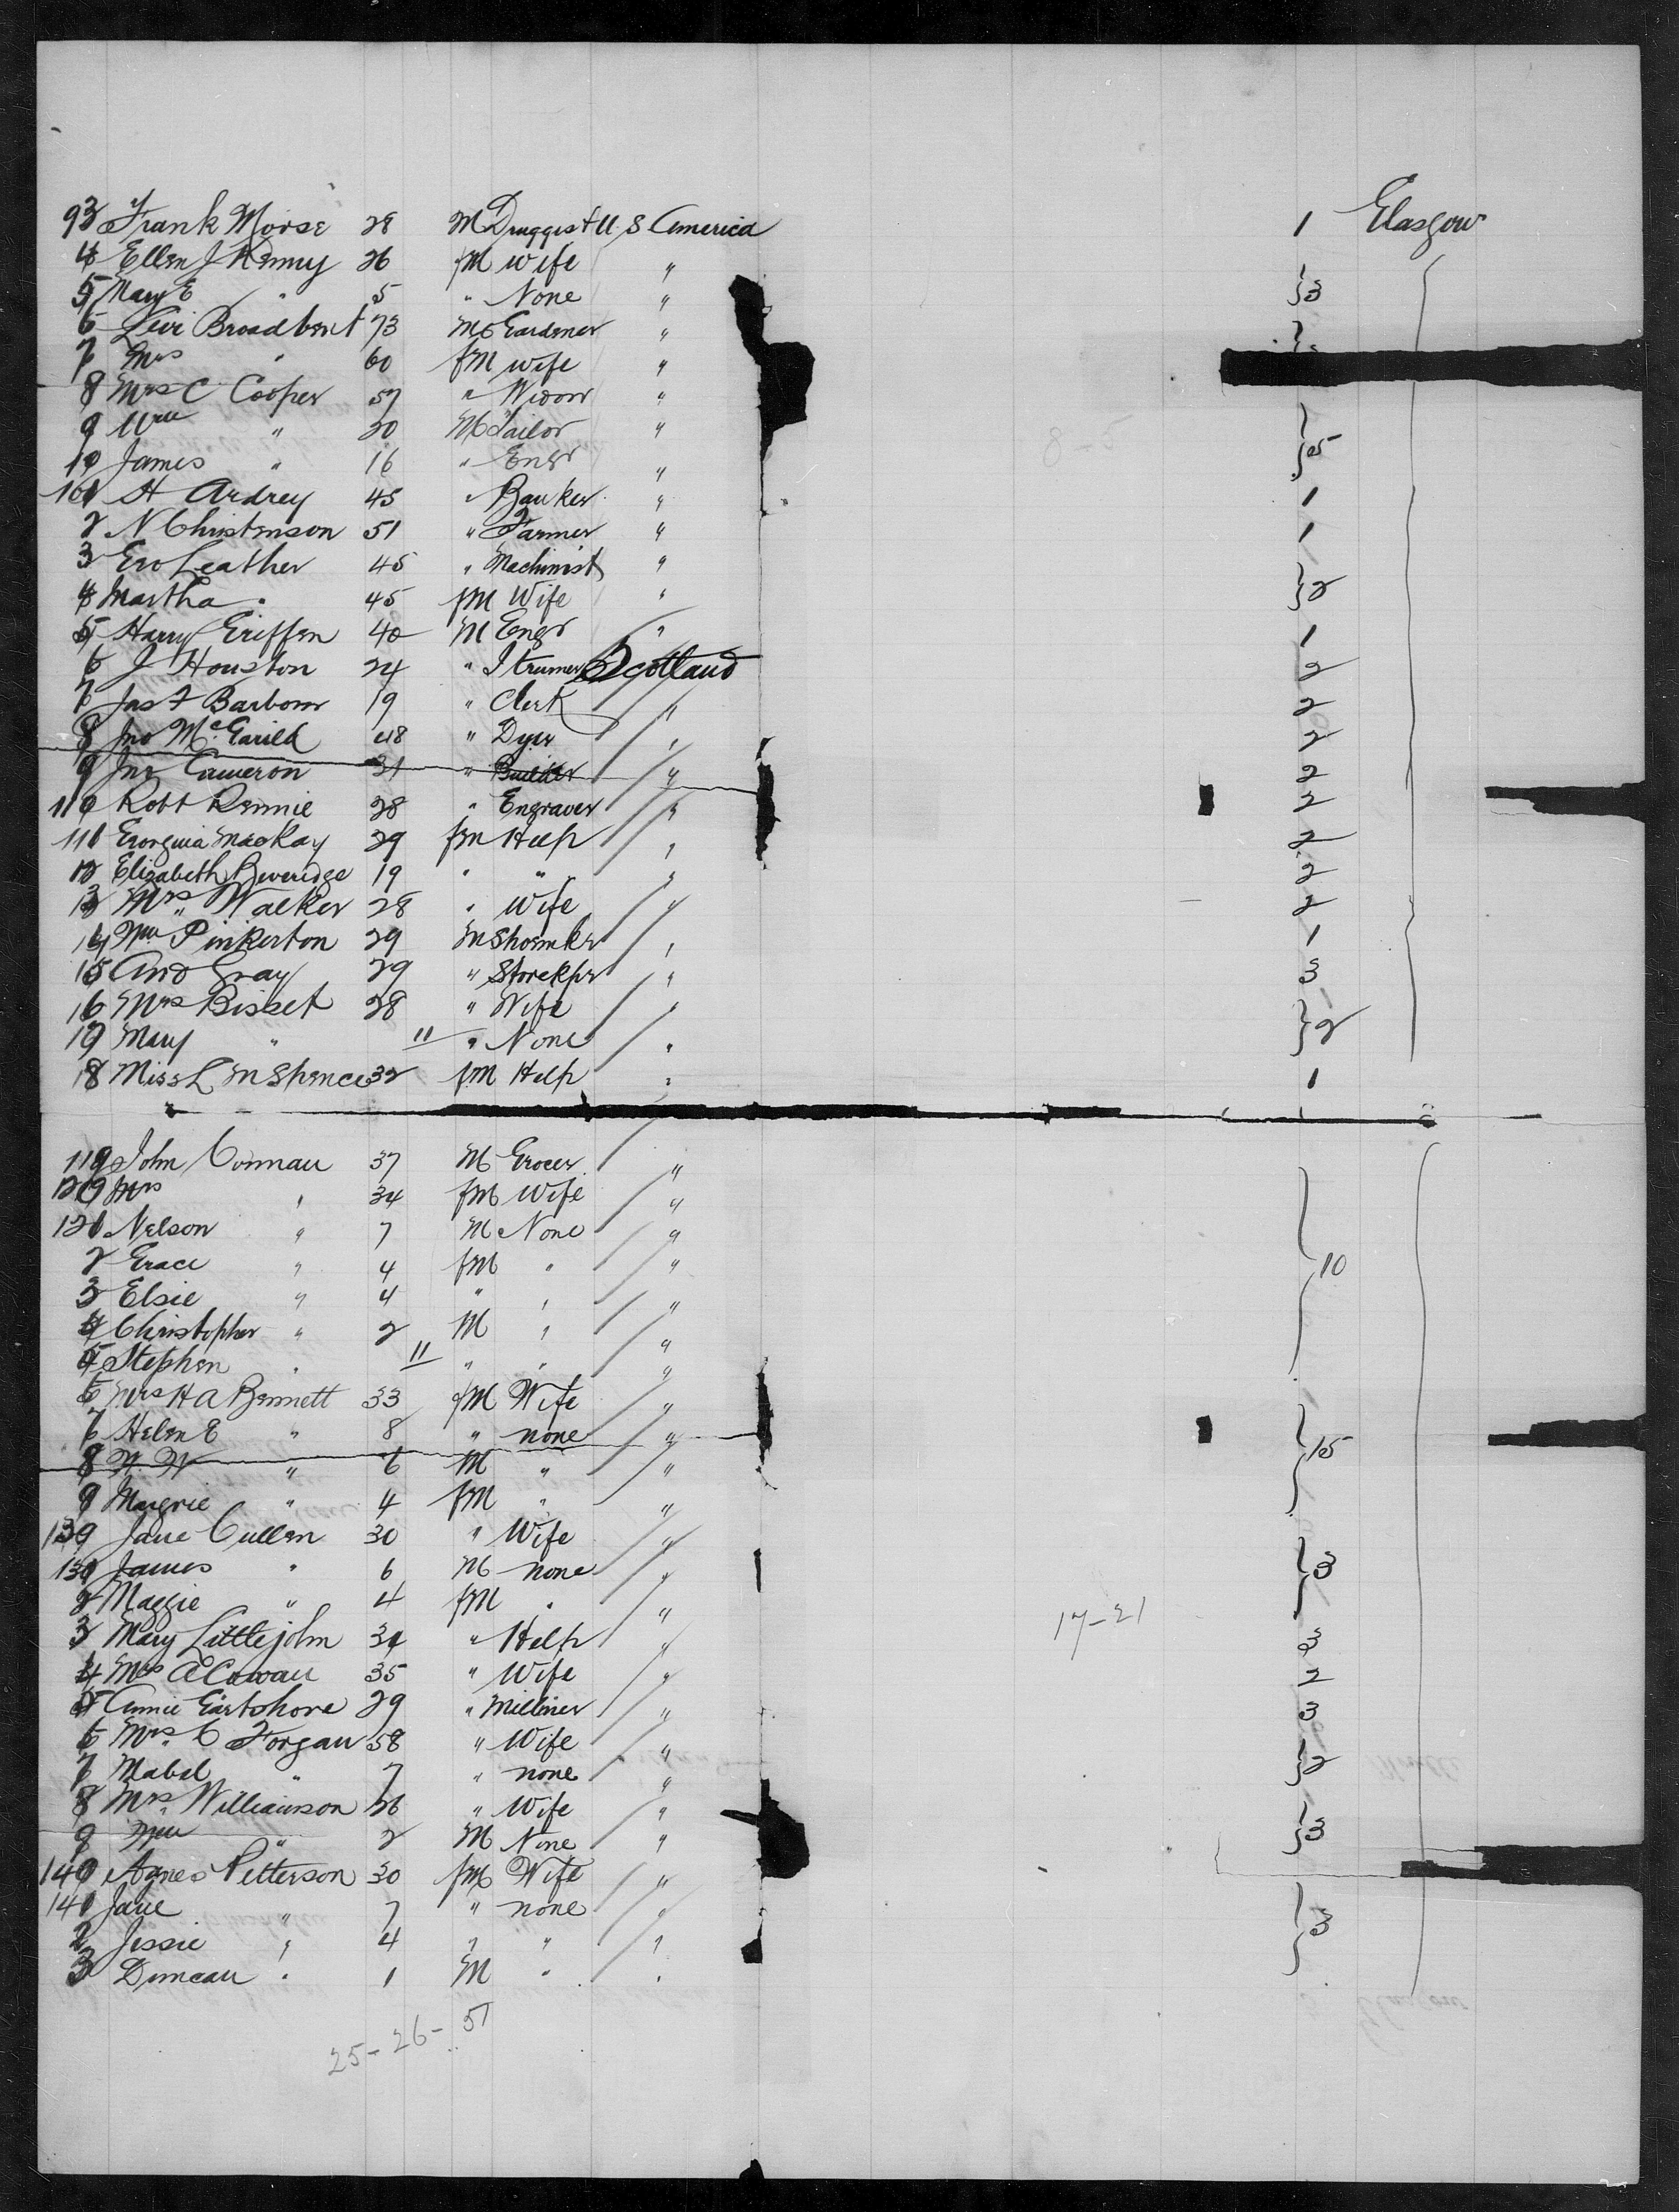 93 Frank Morse 28 M Druggist U. S America 1 Glasgow
4 Ellen J Renny 26 fM wife "
5 Mary E " 5 " None " }3
6 Levi Broadbent 73 M Gardener "
7 Mrs " 60 fM wife "
8 Mrs C Cooper 57 " Widow "
9 Wm " 30 M Tailor "
10 James " 16 " Engr " }5
101 H Ardrey 45 " Banker " 1
2 N Christenson 51 " Farmer " 1
3 Leather 45 " Machinist "
4 Martha " 45 fM Wife " }2
5 Harry Griffen 40 M Engr " 1
6 J Houston 24 " Scotland 2
7 Jas F Barbour 19 " Clerk " 2
8 Jno 48 " Dyer " 2
9 Jno Cameron 31 " Builder " 2
110 Robt Rennie 28 " Engraver " 2
111 Georgina MacKay 29 fm Help " 2
12 Elizabeth Beveridge 19 " " " 2
13 Mrs Walker 28 " Wife " 2
14 Wm Pinkerton 29 M Shoemkr " 1
15 And Gray 29 " Storekpr " 3
16 Mrs Bisset 28 " Wife "
17 Mary " 11 " None " }2
18 Miss L M Spence 32 fM Help " 1
119 John Connan 37 M Grocer "
120 Mrs " 34 fM Wife "
121 Nelson " 7 M None "
2 Grace " 4 fM " " }10
3 Elsie " 4 " " "
4 Christopher " 2 M " "
5 Stephen " 11 " " "
6 Mrs H A Bennett 33 fM Wife "
7 Helen E " 8 " none " }15
8 W. W " 6 M " "
9 " 4 fM " "
130 Jane Cullen 30 " Wife "
131 James " 6 M none " }3
2 Maggie " 4 fM " " 17-21
3 Mary Littlejohn 34 " Help " 3
4 Mrs A Cowan 35 " Wife " 2
5 Annie Gartshore 29 " Milliner " 3
6 Mrs C Forgan 58 " Wife "
7 Mabel " 7 " none " }2
8 Mrs Williamson 26 " Wife "
9 Wm " 2 M None " }3
140 Agnes Petterson 30 fM Wife "
141 Jane " 7 " none "
2 Jessie " 4 " " " }3
3 Duncan " 1 M " "
25-26-51